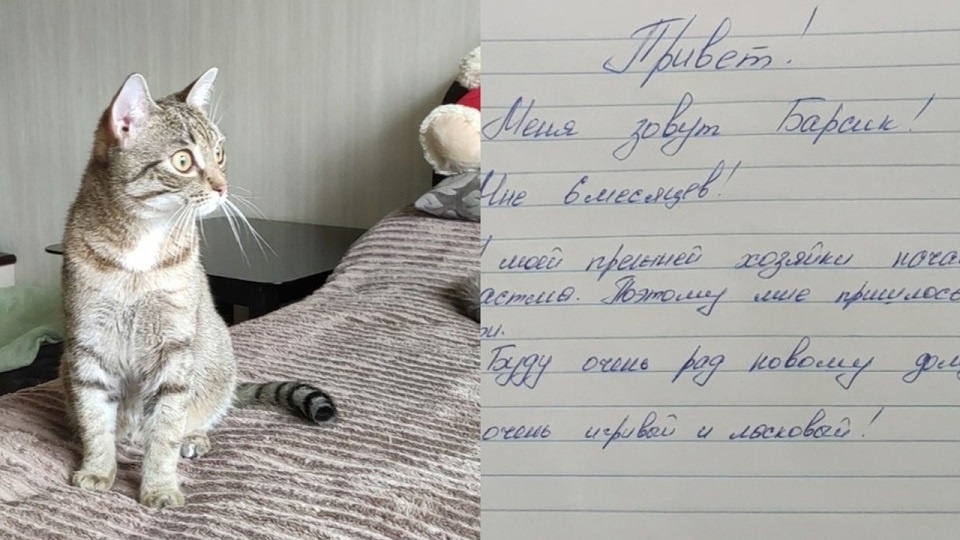 Привет!
Меня зовут Барсик!
Мне 6 месяцев!
моей прежней хозяйки нача
астма. Поэтому мне пришлось
Буду очень рад новому дому
очень игривый и ласковый!